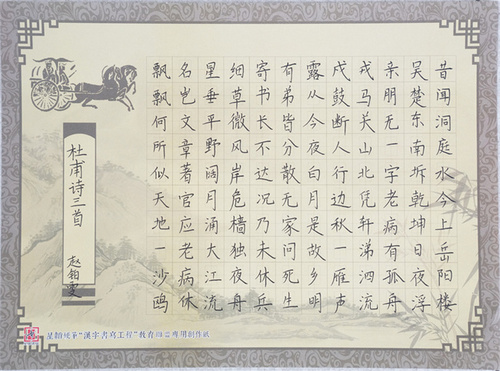 昔闻洞庭水今上岳阳楼
吴楚东南坼乾坤日夜浮
亲朋无一字老病有孤舟
戎马关山北凭轩涕泗流
戍鼓断人行边秋一雁声
露从今夜白月是故乡明
有弟皆分散无家问死生
寄书长不达况乃未休兵
细草微风岸危樯独夜舟
星垂平野阔月涌大江流
名岂文章著官应老病休
飘飘何所似天地一沙鸥
杜甫诗三首
"漢字書寫工程"教育專用創作紙